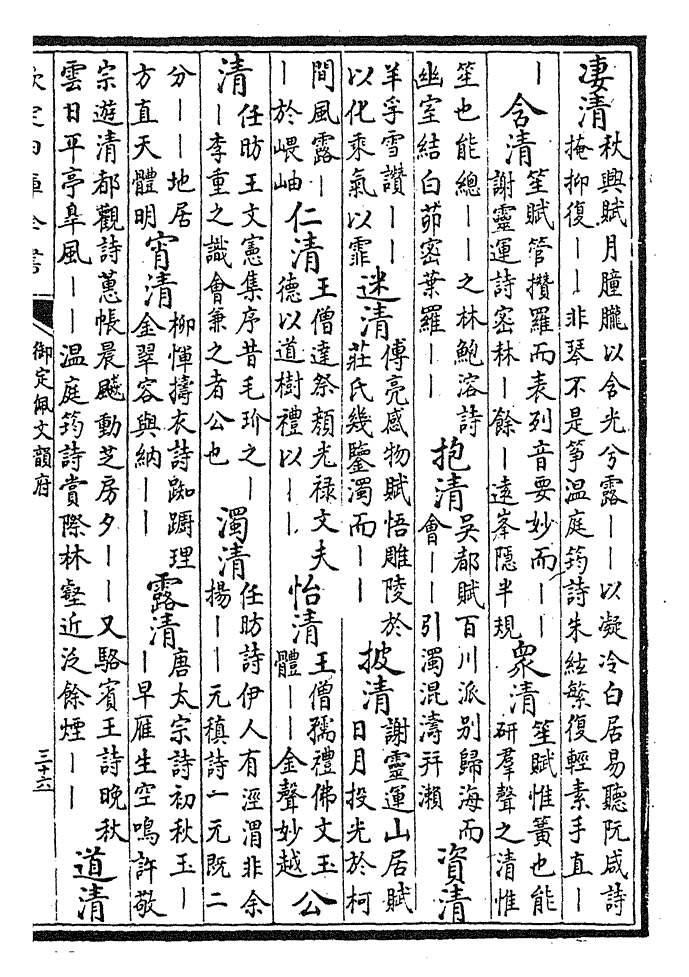 凄清 秋興賦月朣朧以含光兮露——以凝冷白居易聽阮咸詩
掩抑復——非琴不是箏温庭筠詩朱絃繁復輕素手直—
— 含清 笙賦管攢羅而表列音要妙而——
謝靈運詩密林—餘—遠峯隱半規 眾清 笙賦惟簧也能
研羣聲之清惟
笙也能總——之林鮑溶詩
幽室結白茆密葉羅—— 抱清 吳都賦百川派别歸海而
會——引濁混濤并瀨 資清
羊孚雪讚——
以化乘氣以霏 迷清 傅亮感物賦悟雕陵於
莊氏幾鑒濁而—— 披清 謝靈運山居賦
日月投光於柯
間風露—
—於嵔岫 仁清 王僧達祭顔光禄文夫
德以道樹禮以—— 怡清 王僧孺禮佛文玉
體——金聲妙越 公
清 任昉王文憲集序昔毛玠之—
—李重之識會兼之者公也 濁清 任昉詩伊人有涇渭非余
揚——元稹詩一元既二
分——地居
方直天體明 宵清 柳惲擣衣詩踟躕理
金翠容與納—— 露清 唐太宗詩初秋玉—
—早雁生空鳴許敬
宗遊清都觀詩蕙帳晨飇動芝房夕——又駱賓王詩晚秋
雲日平亭皋風——温庭筠詩賞際林壑近泛餘煙—— 道清
欽定四庫全書
御定佩文韻府
三十六